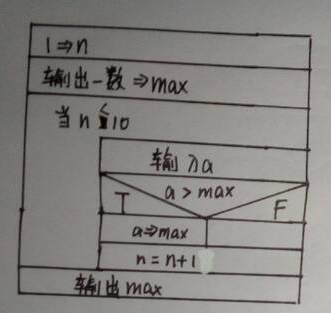 1⇒n
输出一数⇒max
当n≦10
输入a
a>max
T F
a⇒max
n=n+1
输出max